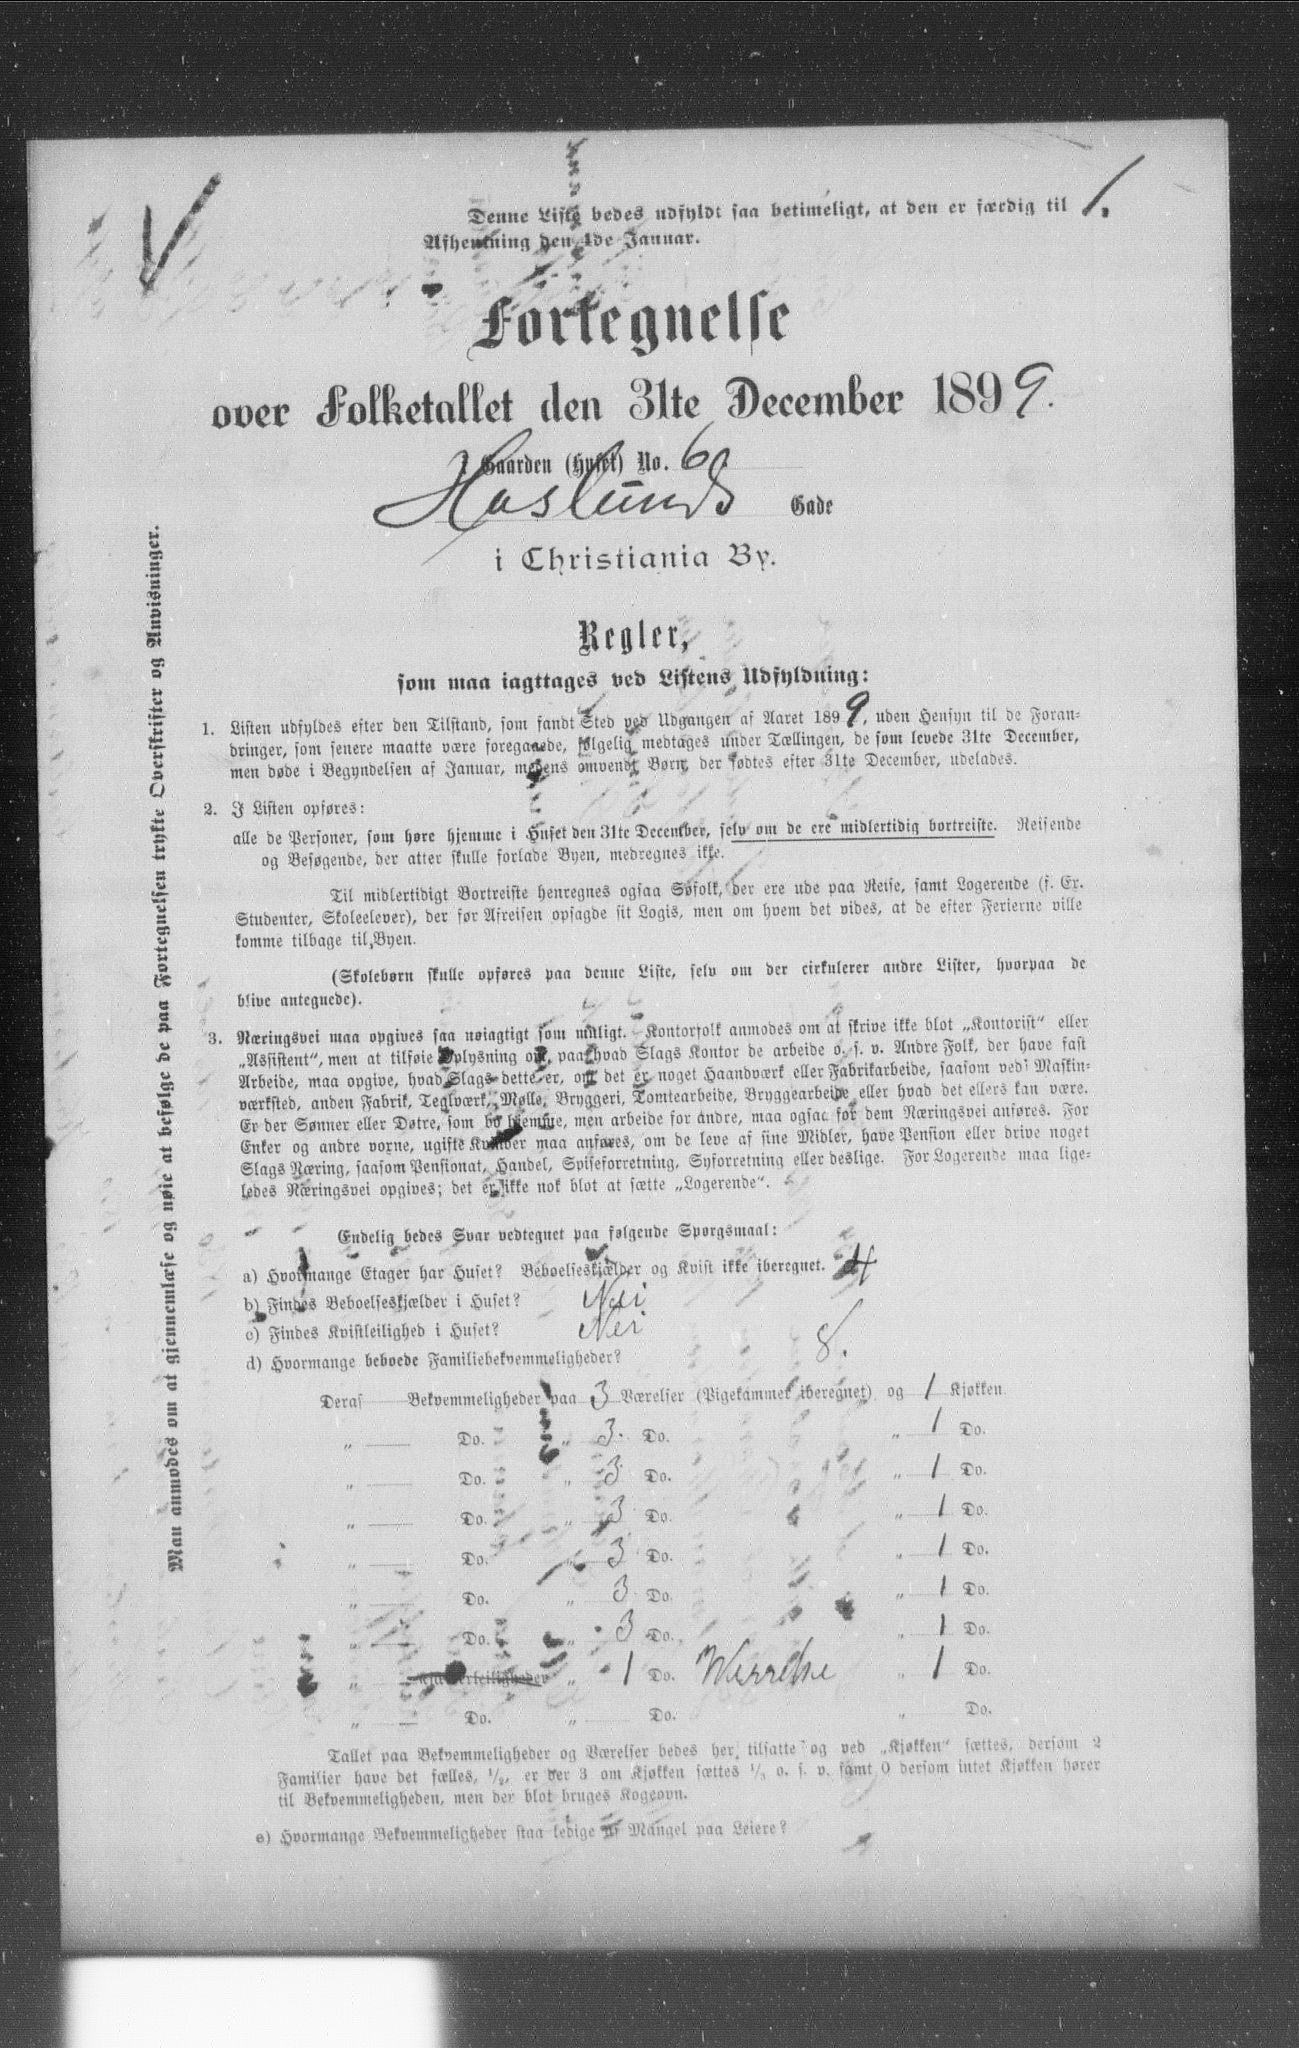 1.
Denne Liste bedes udfyldt saa betimeligt, at den er færdig til
Afhentning den 4de Januar.
Fortegnelse
over Folketallet den 31te December 1899.
i Gaarden (Huset) No. 6
Haslunds Gade
i Christiania By.
Regler,
som maa iagttages ved Listens Udfyldning:
1. Listen udfyldes efter den Tilstand, som fandt Sted ved Udgangen af Aaret 1899, uden Hensyn til de Foran-
dringer, som senere maatte være foregaaede, følgelig medtages under Tællingen, de som levede 31te December,
men døde i Begyndelsen af Januar, medens omvendt Børn, der fødtes efter 31te December, udelades.
2. I Listen opføres:
alle de Personer, som høre hjemme i Huset den 31te December, selv om de ere midlertidig bortreiste. Reisende
og Besøgende, der atter skulle forlade Byen, medregnes ikke.
Til midlertidigt Bortreiste henregnes ogsaa Søfolk, der ere ude paa Reise, samt Logerende (f. Ex.
Studenter, Skoleelever), der før Afreisen opsagde sit Logis, men om hvem det vides, at de efter Ferierne ville
komme tilbage til Byen.
(Skolebørn skulle opføres paa denne Liste, selv om der cirkulerer andre Lister, hvorpaa de
blive antegnede).
3. Næringsvei maa opgives saa nøiagtigt som muligt. Kontorfolk anmodes om at skrive ikke blot „Kontorist“ eller
„Assistent“, men at tilføie Oplysning om, paa hvad Slags Kontor de arbeide o. s. v. Andre Folk, der have fast
Arbeide, maa opgive, hvad Slags dette er, om det er noget Haandværk eller Fabrikarbeide, saasom ved Maskin-
værksted, anden Fabrik, Teglværk, Mølle, Bryggeri, Tomtearbeide, Bryggearbeide eller hvad det ellers kan være.
Er der Sønner eller Døtre, som bo hjemme, men arbeide for andre, maa ogsaa for dem Næringsvei anføres. For
Enker og andre voxne, ugifte Kvinder maa anføres, om de leve af sine Midler, have Pension eller drive noget
Slags Næring, saasom Pensionat, Handel, Spiseforretning, Syforretning eller deslige. For Logerende maa lige-
ledes Næringsvei opgives; det er ikke nok blot at sætte „Logerende“.
Endelig bedes Svar vedtegnet paa følgende Spørgsmaal:
a) Hvormange Etager har Huset? Beboelseskjælder og Kvist ikke iberegnet. 4
b) Findes Beboelseskjælder i Huset? Nei
c) Findes Kvistleilighed i Huset? Nei
d) Hvormange beboede Familiebekvemmeligheder? 8.
Deraf Bekvemmeligheder paa 3 Værelser (Pigekammer iberegnet) og 1 Kjøkken
„ Do. „ 3. Do. „ 1 Do.
„ Do. „ 3 Do. „ 1 Do.
„ Do. „ 3 Do. „ 1 Do.
„ Do. „ 3 Do. „ 1 Do.
„ Do. „ 3 Do. „ 1 Do.
„ Do. „ 3 Do. „ 1 Do.
„ „ 1 Do. Værelse „ 1 Do.
„ Do. „ Do. „ Do.
Tallet paa Bekvemmeligheder og Værelser bedes her tilsatte og ved „Kjøkken“ sættes, dersom 2
Familier have det fælles, 1/2, er der 3 om Kjøkken sættes 1/3 o. s. v. samt 0 dersom intet Kjøkken hører
til Bekvemmeligheden, men der blot bruges Kogeovn.
e) Hvormange Bekvemmeligheder staa ledige af Mangel paa Leiere?
Man anmodes om at gjennemlæse og nøie at befølge de paa Fortegnelsen trykte Overskrifter og Anvisninger.